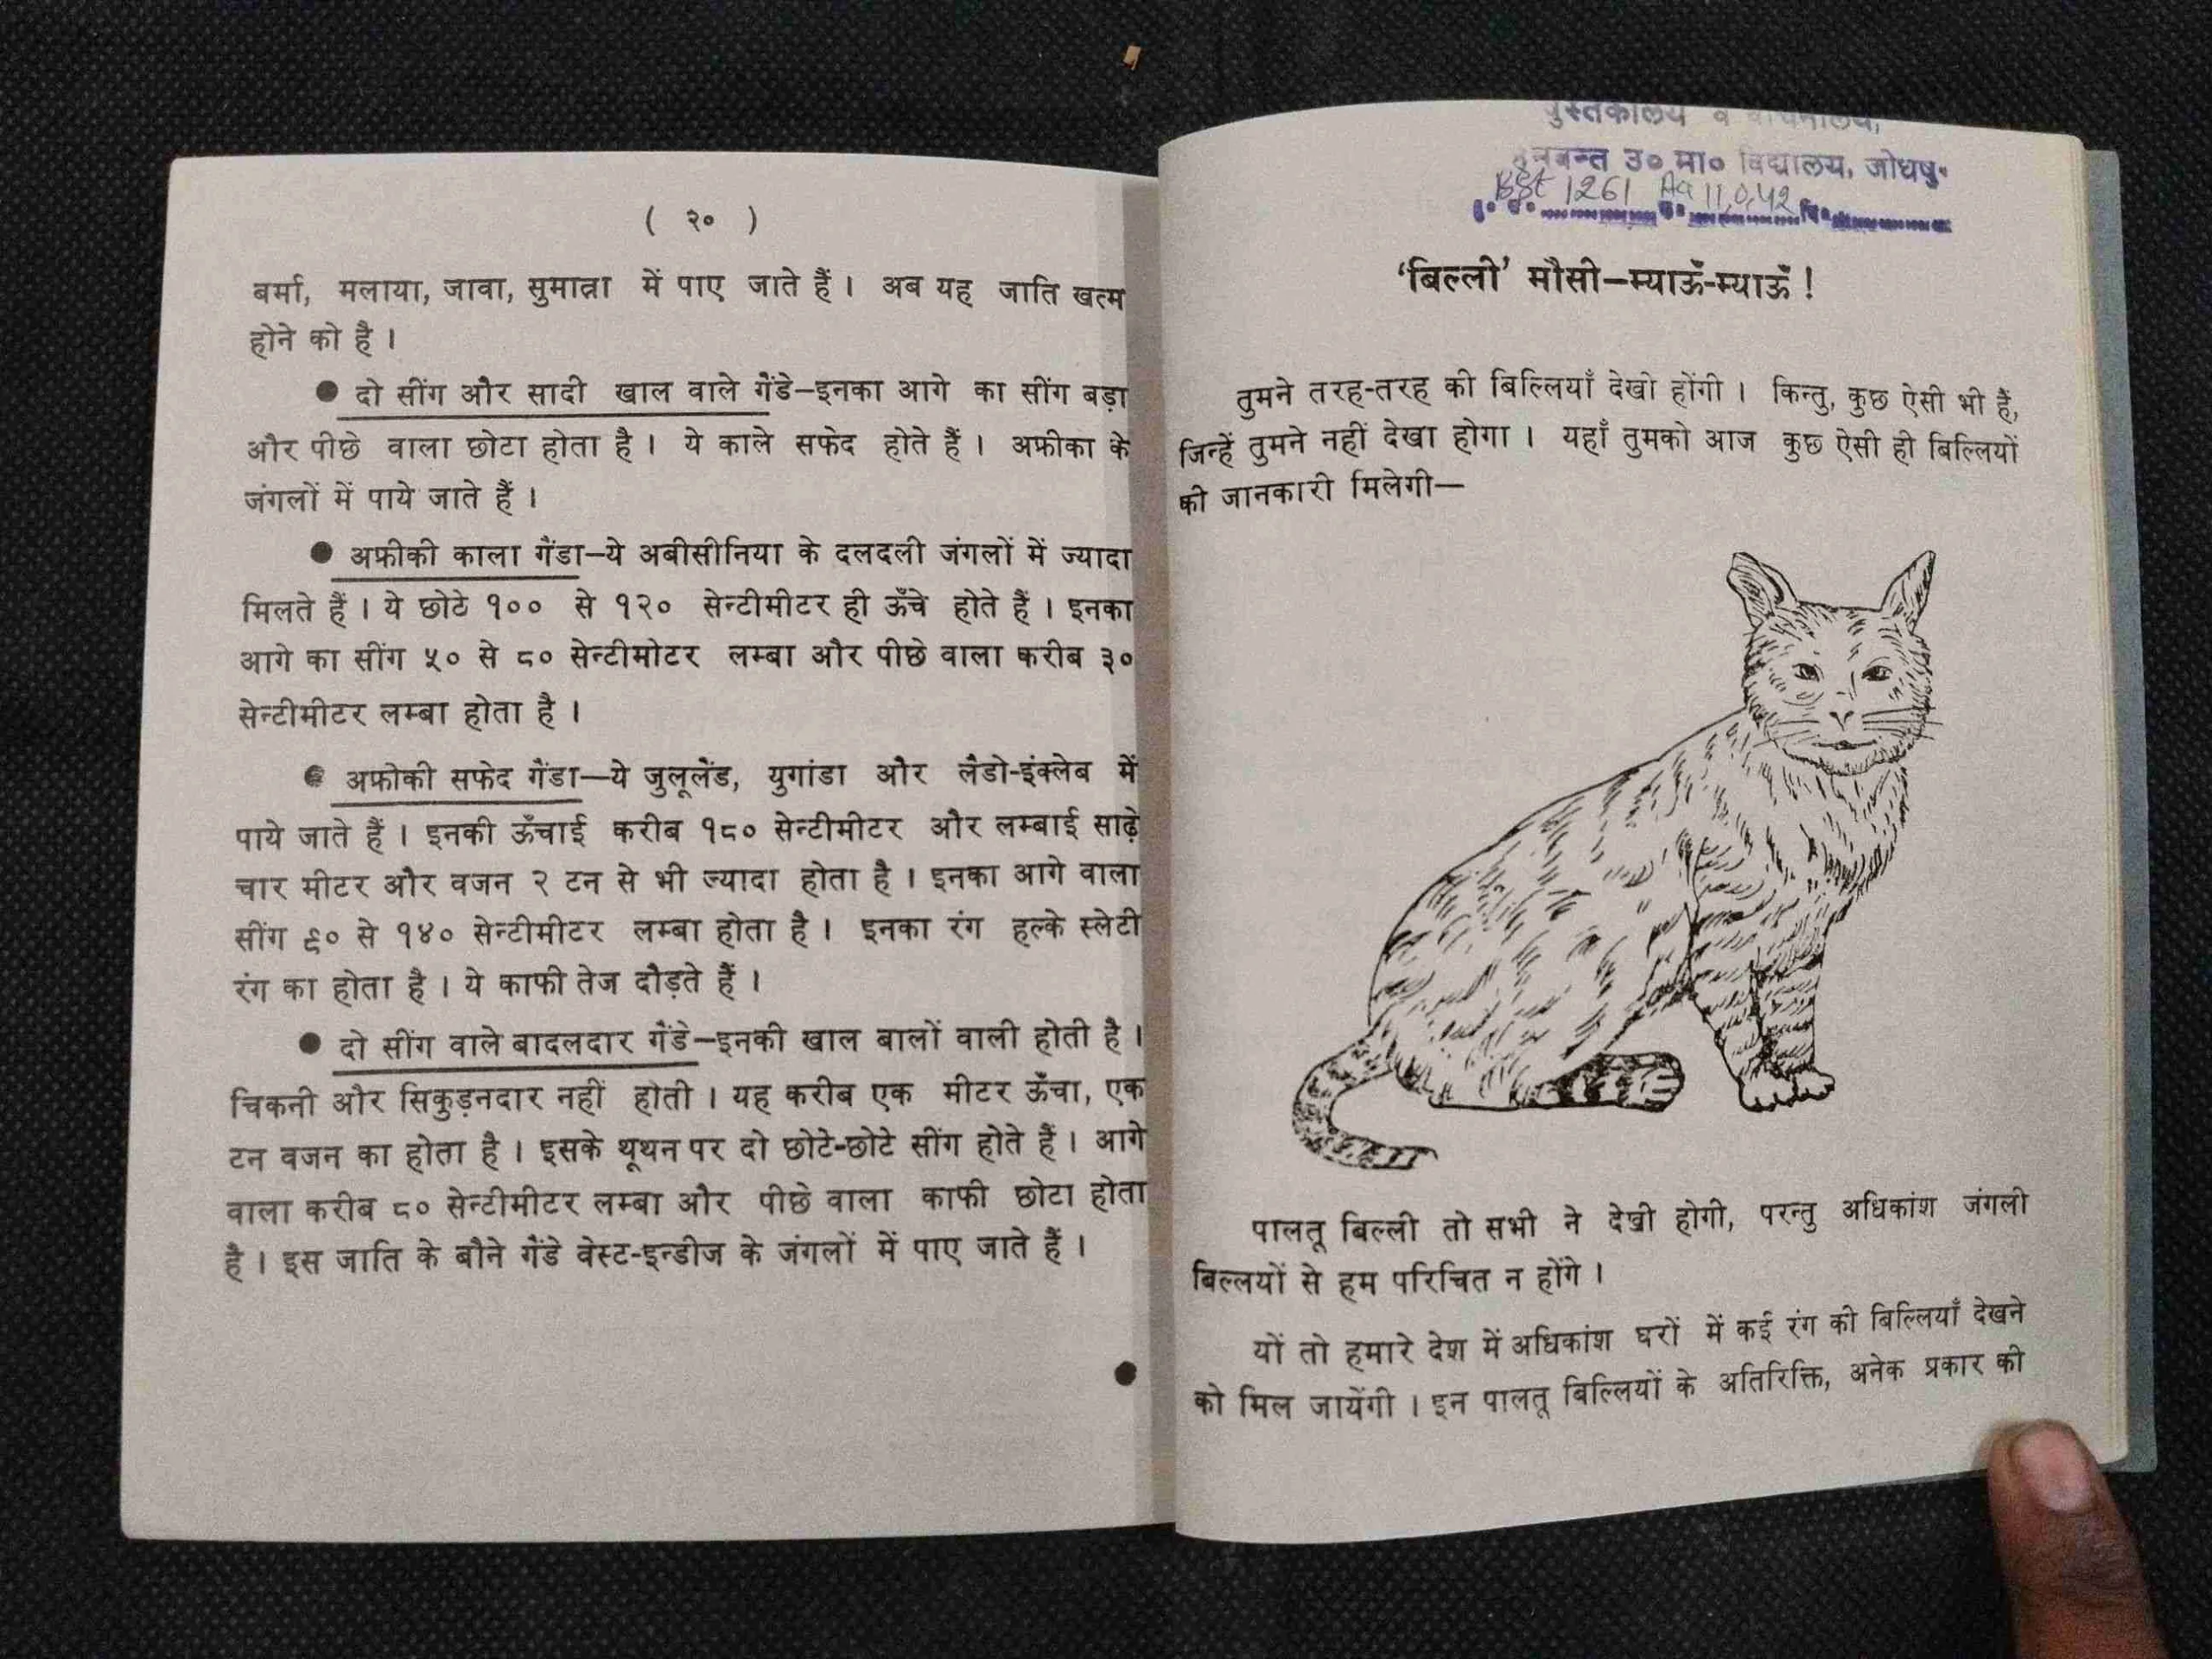 ( २० )
बर्मा, मलाया, जावा, सुमात्रा में पाए जाते हैं। अब यह जाति खत्म
होने को है।
● दो सींग और सादी खाल वाले गैंडे—इनका आगे का सींग बड़ा
और पीछे वाला छोटा होता है। ये काले सफेद होते हैं। अफ्रीका के
जंगलों में पाये जाते हैं।
● अफ्रीकी काला गैंडा—ये अबीसीनिया के दलदली जंगलों में ज्यादा
मिलते हैं। ये छोटे १०० से १२० सेन्टीमीटर ही ऊँचे होते हैं। इनका
आगे का सींग ५० से ८० सेन्टीमीटर लम्बा और पीछे वाला करीब ३०
सेन्टीमीटर लम्बा होता है।
● अफ्रीकी सफेद गैंडा—ये जुलूलैंड, युगांडा और लैडो-इंक्लेब में
पाये जाते हैं। इनकी ऊँचाई करीब १८० सेन्टीमीटर और लम्बाई साढ़े
चार मीटर और वजन २ टन से भी ज्यादा होता है। इनका आगे वाला
सींग ९० से १४० सेन्टीमीटर लम्बा होता है। इनका रंग हल्के स्लेटी
रंग का होता है। ये काफी तेज दौड़ते हैं।
● दो सींग वाले बादलदार गैंडे—इनकी खाल बालों वाली होती है।
चिकनी और सिकुड़नदार नहीं होती। यह करीब एक मीटर ऊँचा, एक
टन वजन का होता है। इसके थूथन पर दो छोटे-छोटे सींग होते हैं। आगे
वाला करीब ८० सेन्टीमीटर लम्बा और पीछे वाला काफी छोटा होता
है। इस जाति के बौने गैंडे वेस्ट-इन्डीज के जंगलों में पाए जाते हैं।
पुस्तकालय व वाचनालय,
हनवन्त उ० मा० विद्यालय, जोधपु
1261 11,0,42
‘बिल्ली’ मौसी—म्याऊँ-म्याऊँ !
तुमने तरह-तरह की बिल्लियाँ देखी होंगी। किन्तु, कुछ ऐसी भी हैं,
जिन्हें तुमने नहीं देखा होगा। यहाँ तुमको आज कुछ ऐसी ही बिल्लियों
की जानकारी मिलेगी—
पालतू बिल्ली तो सभी ने देखी होगी, परन्तु अधिकांश जंगली
बिल्लयों से हम परिचित न होंगे।
यों तो हमारे देश में अधिकांश घरों में कई रंग की बिल्लियाँ देखने
को मिल जायेंगी। इन पालतू बिल्लियों के अतिरिक्ति, अनेक प्रकार की